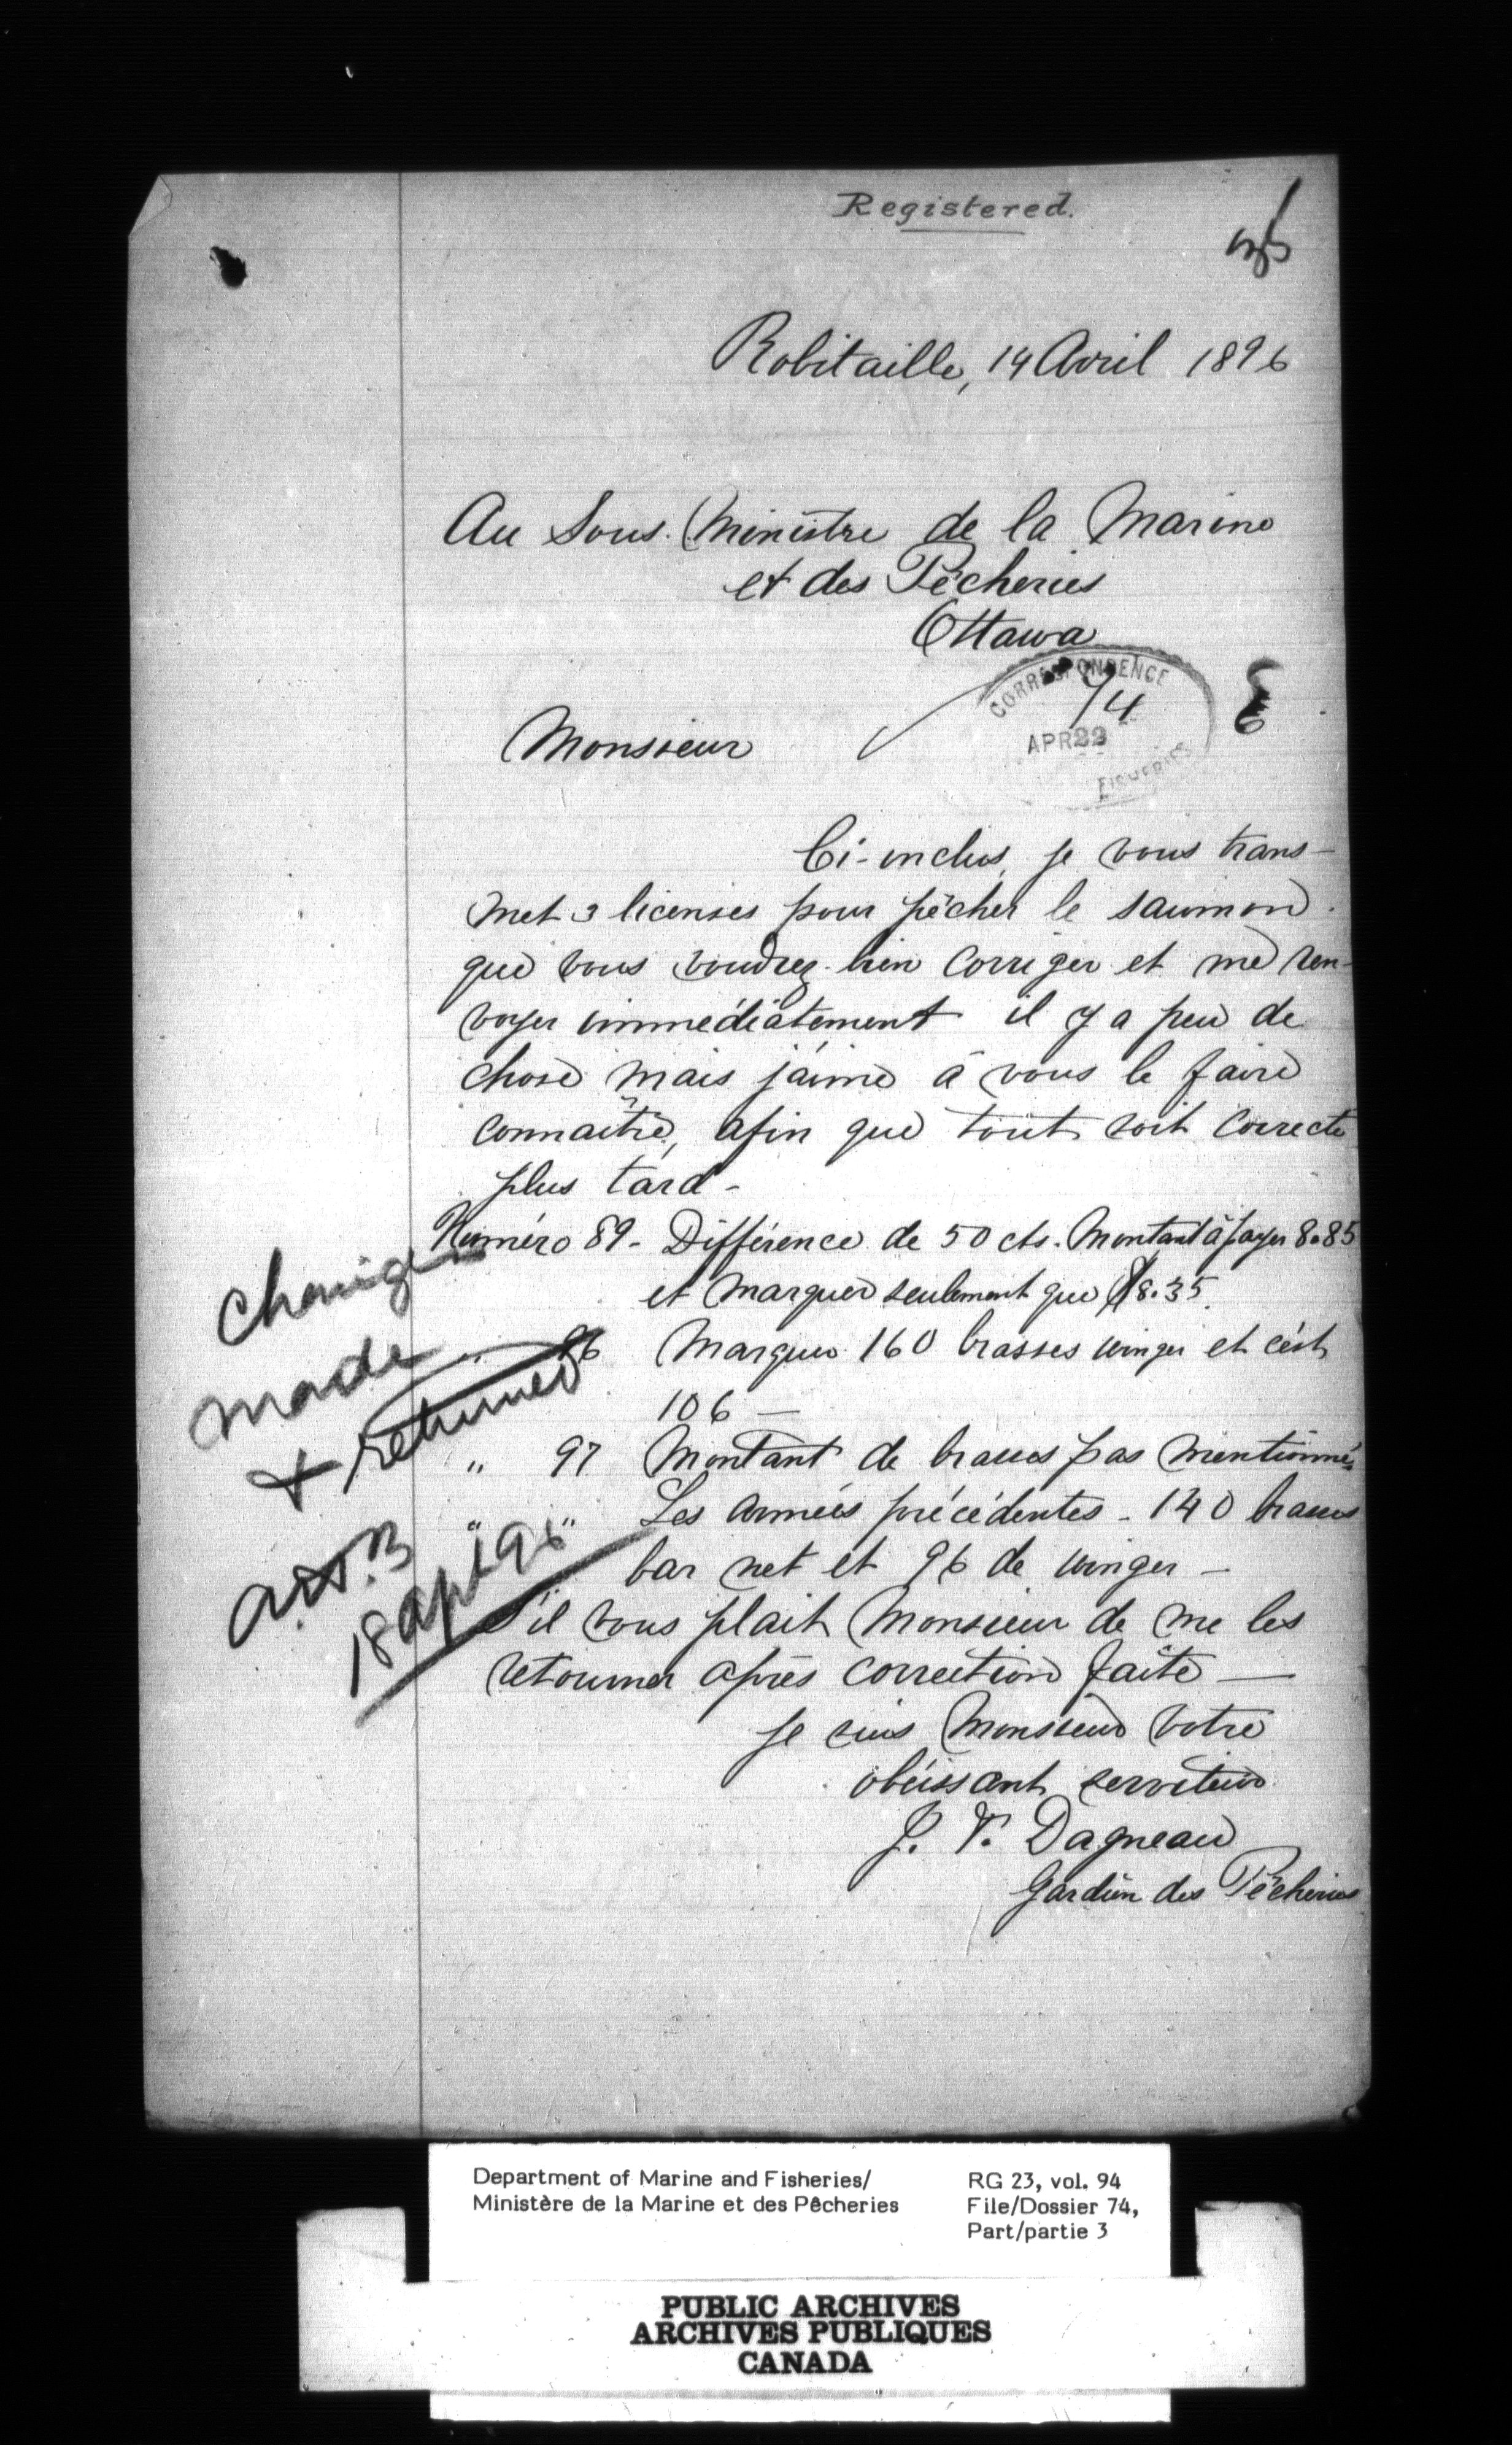 Registered.
Robitaille, 14 Avril 1896
Au Sous. Ministre de la Marine
et des Pêcheries
Ottawa
CORRESPONDENCE
74
APR 22
FISHERIES
Monsieur
Ci-inclus, je vous trans-
met 3 licenses pour pêcher le saumon.
que vous voudrez bien corriger et me ren-
voyer immédiatement il y a peu de
chose mais j'aime à vous le faire
connaître, afin que tout soit correcte
plus tard -
Numéro 89 - Différence de 50 cts. Montant à payer 8.85
et marquer seulement que $8.35.
" 96 Marquer 160 brasses winger et c'est
106 —
" 97 Montant de brasses pas mentionné
" " Les années précédentes - 140 brasses
bar net et 96 de winger -
S'il vous plait Monsieur de me les
retourner après correction faite —
Je suis Monsieur votre
obéissant serviteur
J. V. Dagneau
Gardien des Pêcheries
Changes
made
+ returned
18 Apl 96
Department of Marine and Fisheries/
Ministère de la Marine et des Pêcheries
RG 23, vol. 94
File/Dossier 74,
Part/partie 3
PUBLIC ARCHIVES
ARCHIVES PUBLIQUES
CANADA